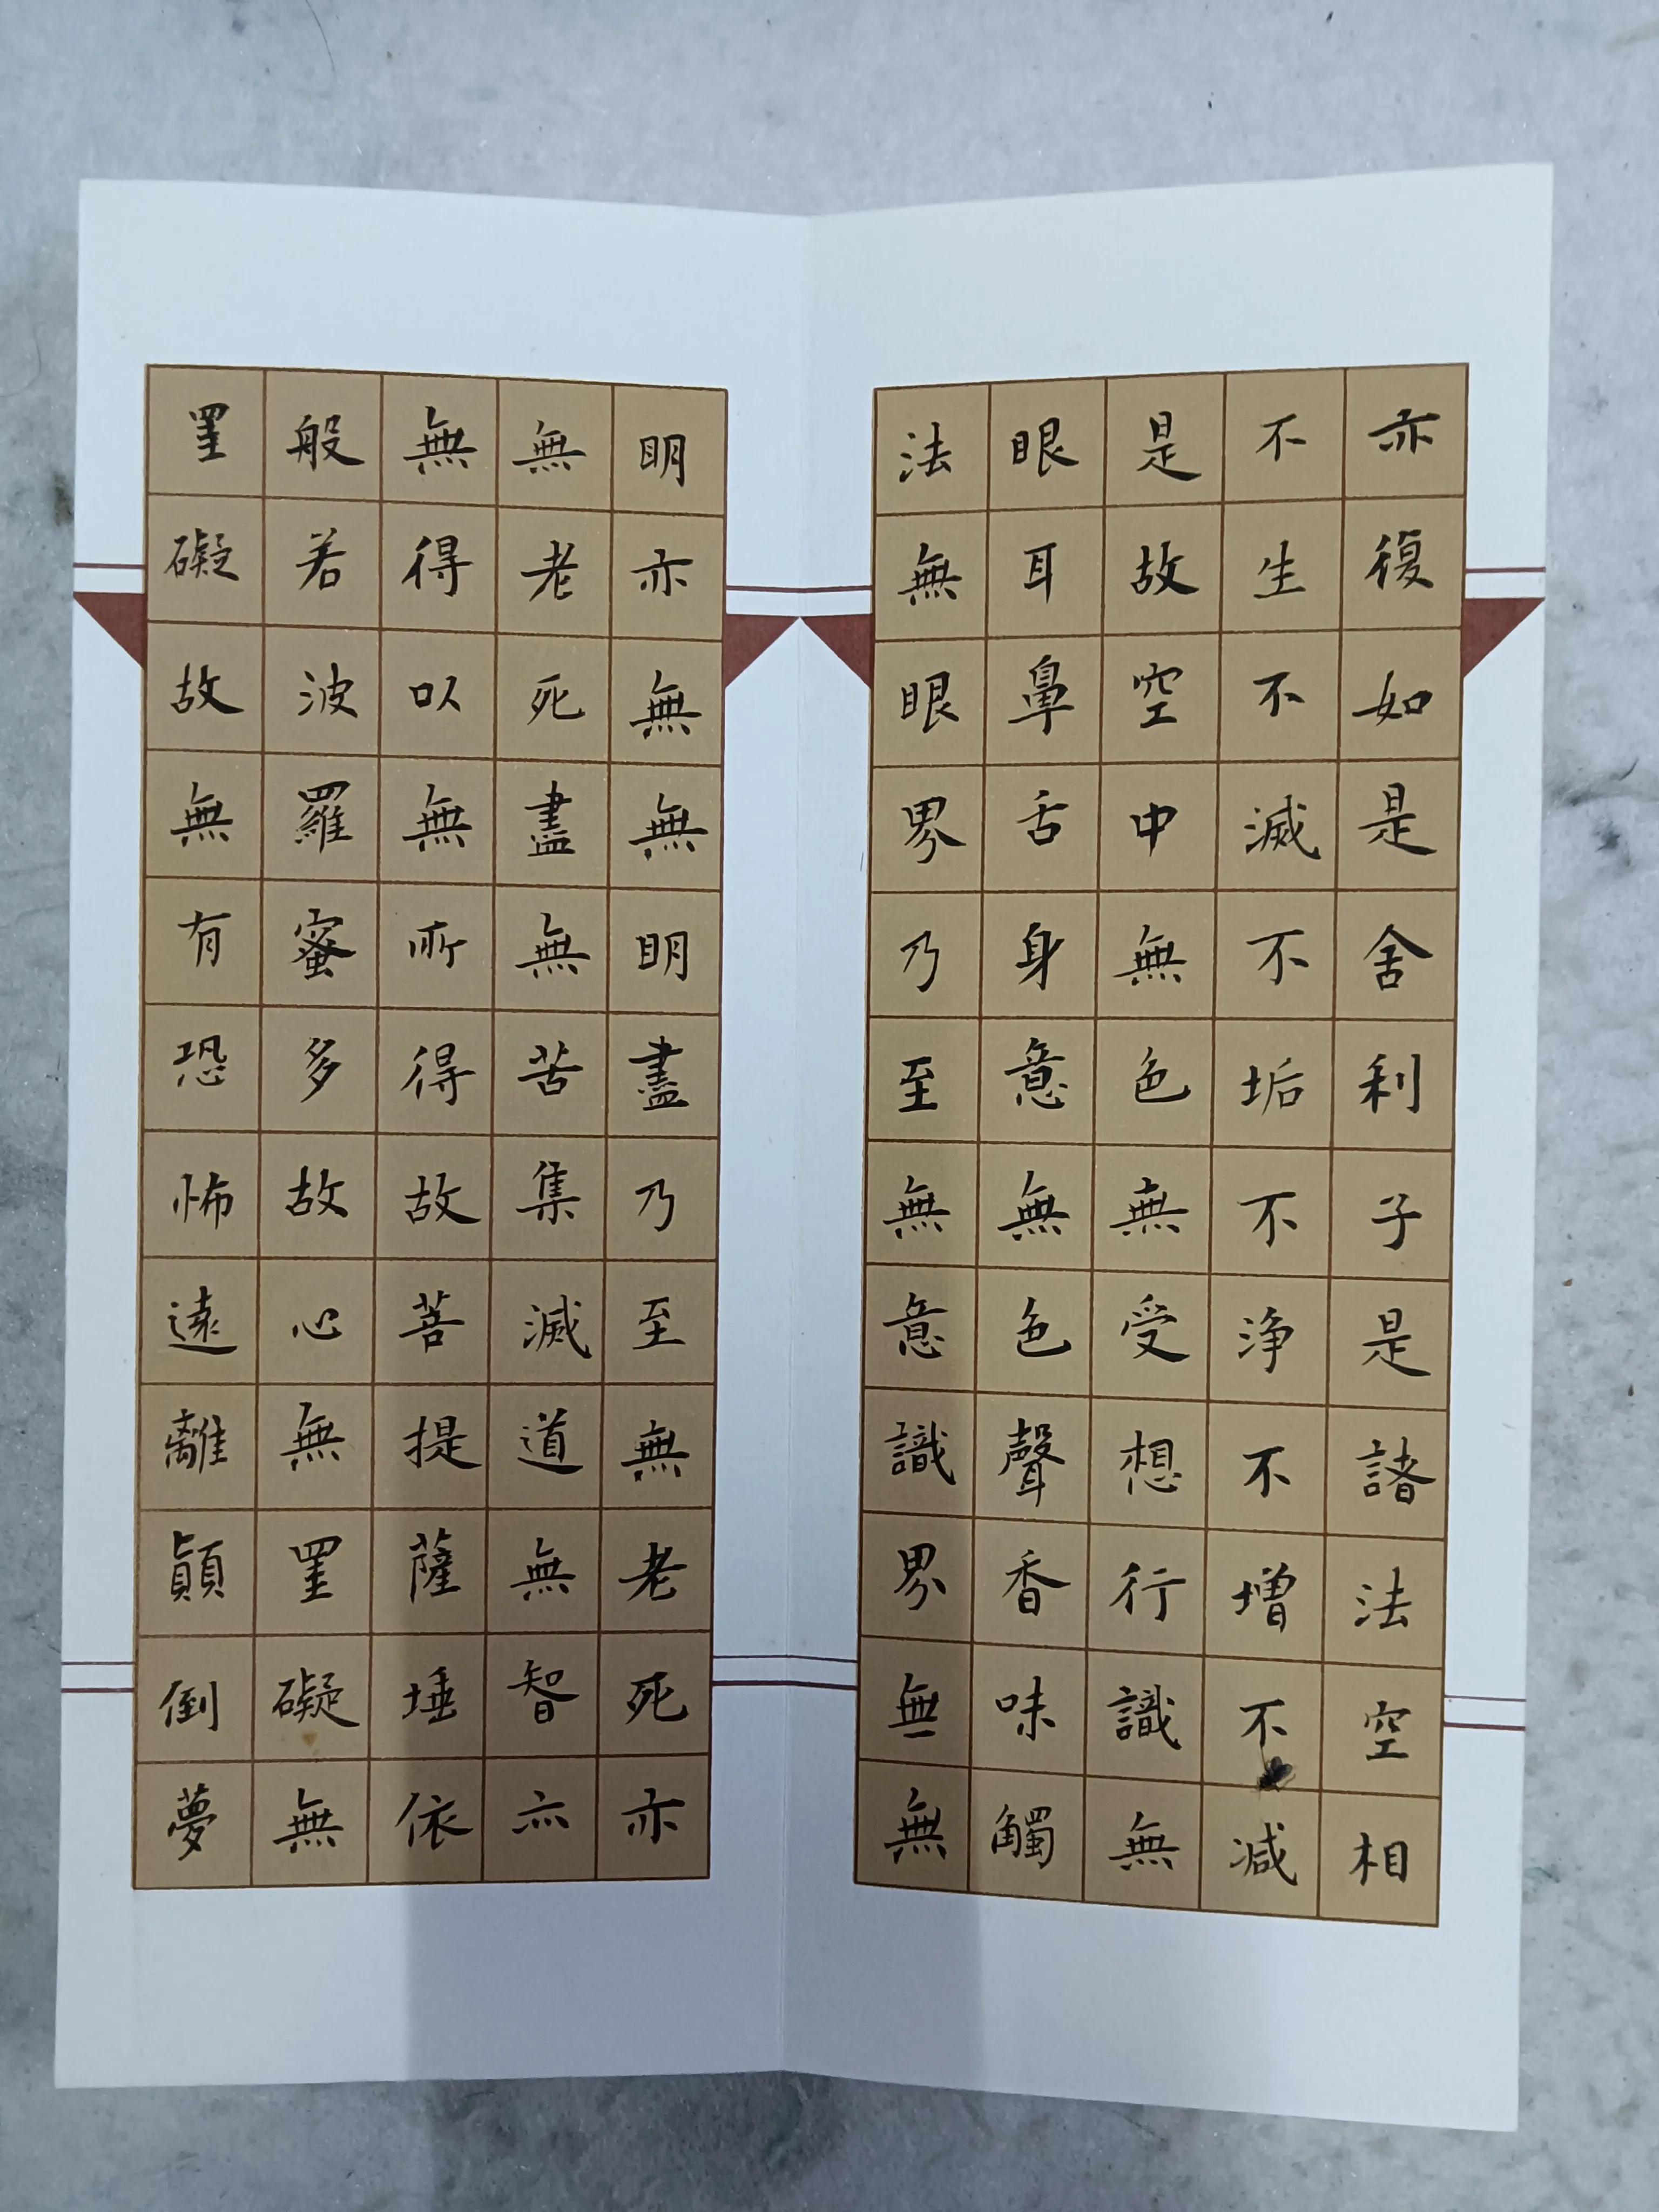 亦復如是舍利子是諸法空相
不生不滅不垢不淨不增不減
是故空中無色無受想行識無
眼耳鼻舌身意無色聲香味觸
法無眼界乃至無意識界無無
明亦無無明盡乃至無老死亦
無老死盡無苦集滅道無智亦
無得以無所得故菩提薩埵依
般若波羅蜜多故心無罣礙無
罣礙故無有恐怖遠離顛倒夢